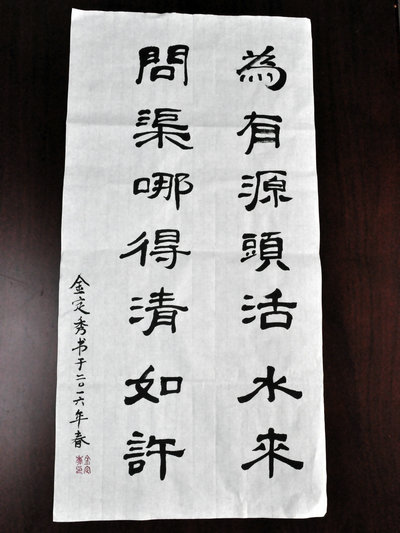 為有源頭活水來
問渠哪得清如許
金定秀书于二〇一六年春